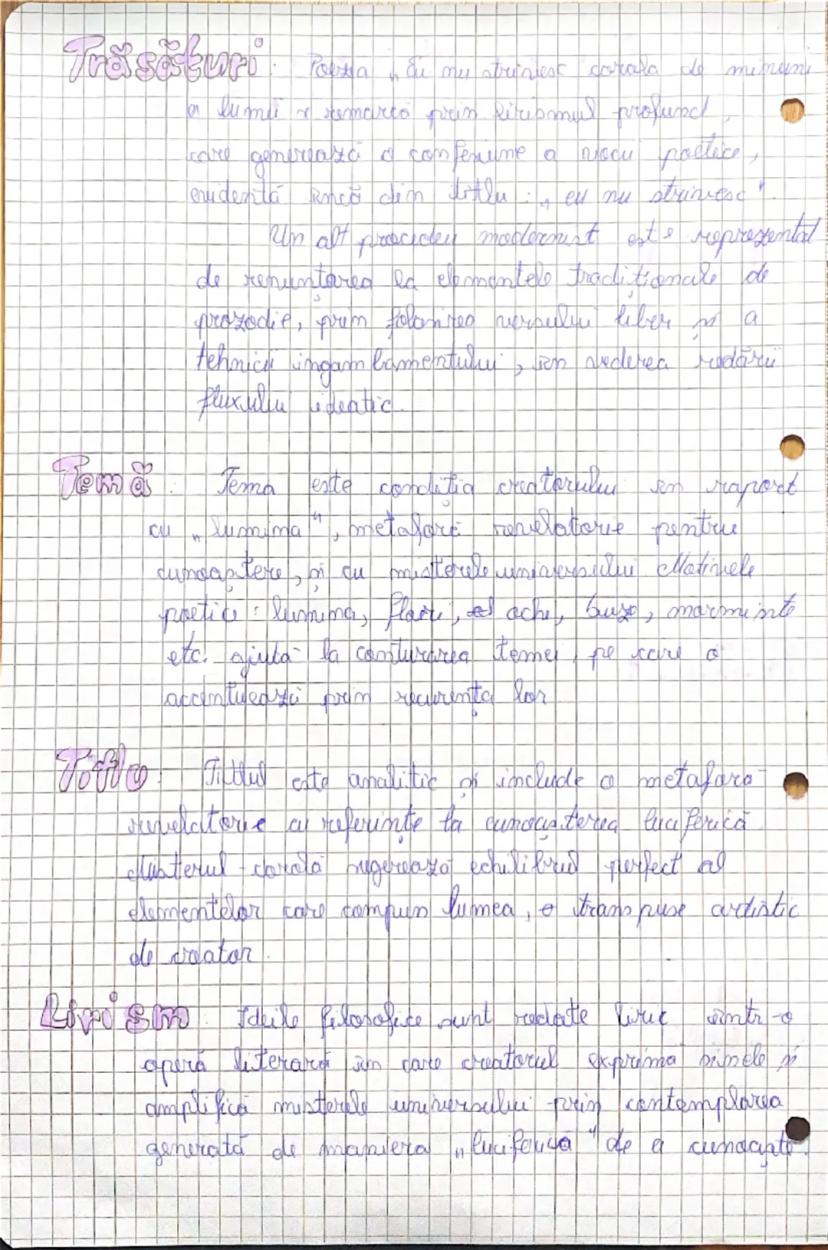 Trăsături: Poezia „Eu nu strivesc corola de minuni
a lumii" remarcă prin lirismul profund,
care generează o confesiune a vocii poetice,
evidentă încă din titlu: „eu nu strivesc".
Un alt procedeu modernist este reprezentat
de renunțarea la elementele tradiționale de
prozodie, prin folosirea versului liber și a
tehnicii ingambamentului, în vederea redării
fluxului ideatic.
Temă: Tema este condiția creatorului în raport
cu „lumina", metaforă revelatorie pentru
cunoaștere, și cu misterele universului. Motivele
poetice: lumina, flori, ochi, buze, morminte
etc. ajută la conturarea temei, pe care o
accentuează prin recurența lor
Titlu: Titlul este analitic și include o metaforă
revelatorie cu referințe la cunoașterea luciferică
-corolă sugerează echilibrul perfect al
elementelor care compun lumea, transpuse artistic
de creator.
Lirism: Ideile filosofice sunt redate liric într-o
operă literară în care creatorul exprimă sinele și
amplifică misterele universului prin contemplarea
generată de maniera „luciferică" de a cunoaște.